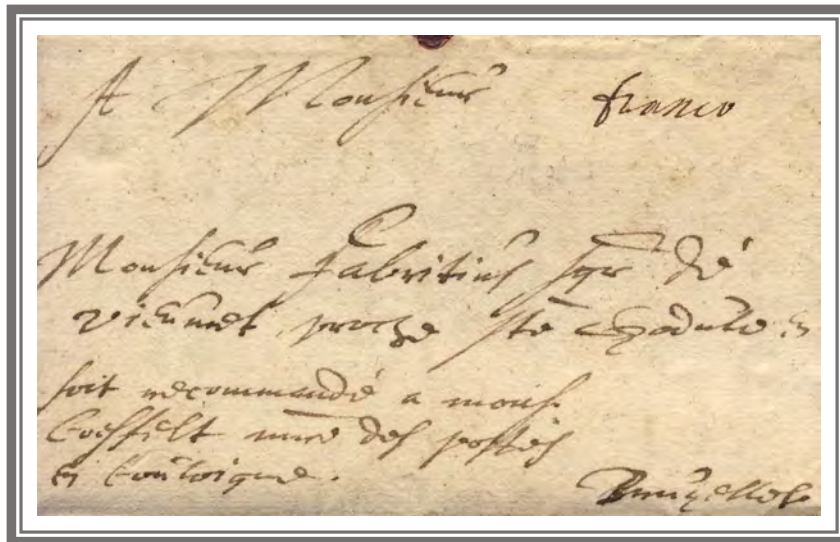 A Monsieur franco
Monsieur Fabritius sgr de
proche ste Goedule
soit recommandé a mons.
Coesfelt mre des postes
en Couloigne.
Bruxelles